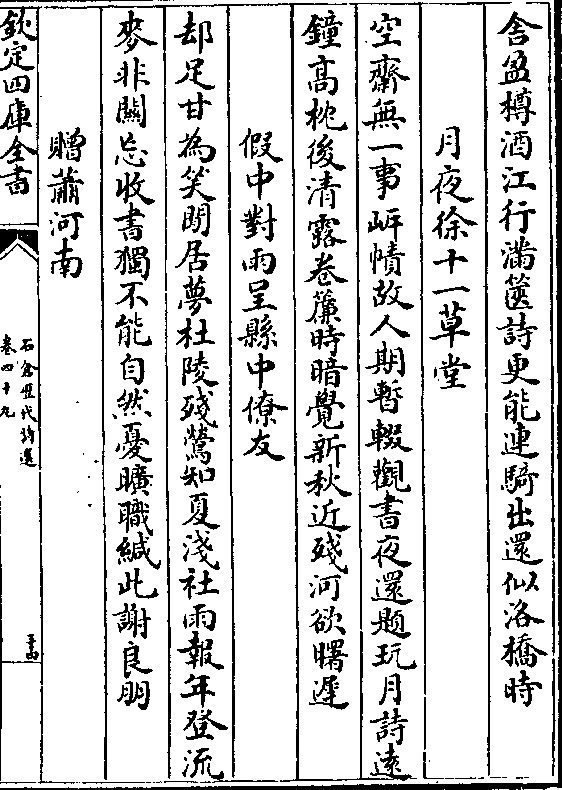 舎盈樽酒江行滿篋詩更能連騎出還似洛橋時
月夜徐十一草堂
空齋無一事岸幘故人期暫輟觀書夜還題玩月詩遠
鐘高枕後清露卷簾時暗覺新秋近殘河欲曙遲
假中對雨呈縣中僚友
却足甘為笑閒居夢杜陵殘鶯知夏淺社雨報年登流
麥非關忘收書獨不能自然憂曠職緘此謝良朋
贈蕭河南
欽定四庫全書
石倉歴代詩選
卷四十九
五十四